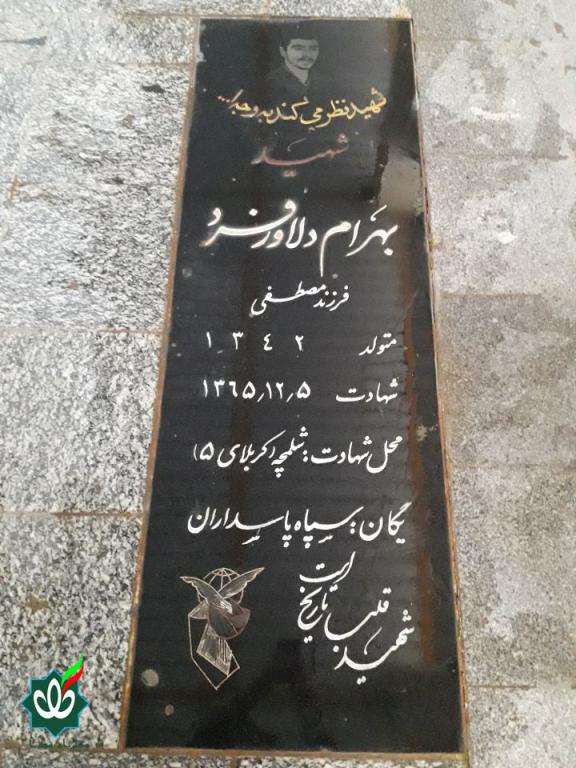 شهید نظر می کند به وجه ا...
شهید
بهرام دلاور فرد
فرزند مصطفی
متولد ۱۳٤۲
شهادت ۱۳٦۵٫۱۲٫۵
محل شهادت: شلمچه (کربلای ۵)
یگان: سپاه پاسداران
شهید قلب تاریخ است